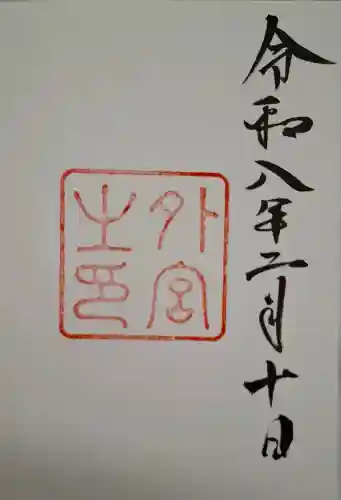 令和八年二月十日
外宮
之印